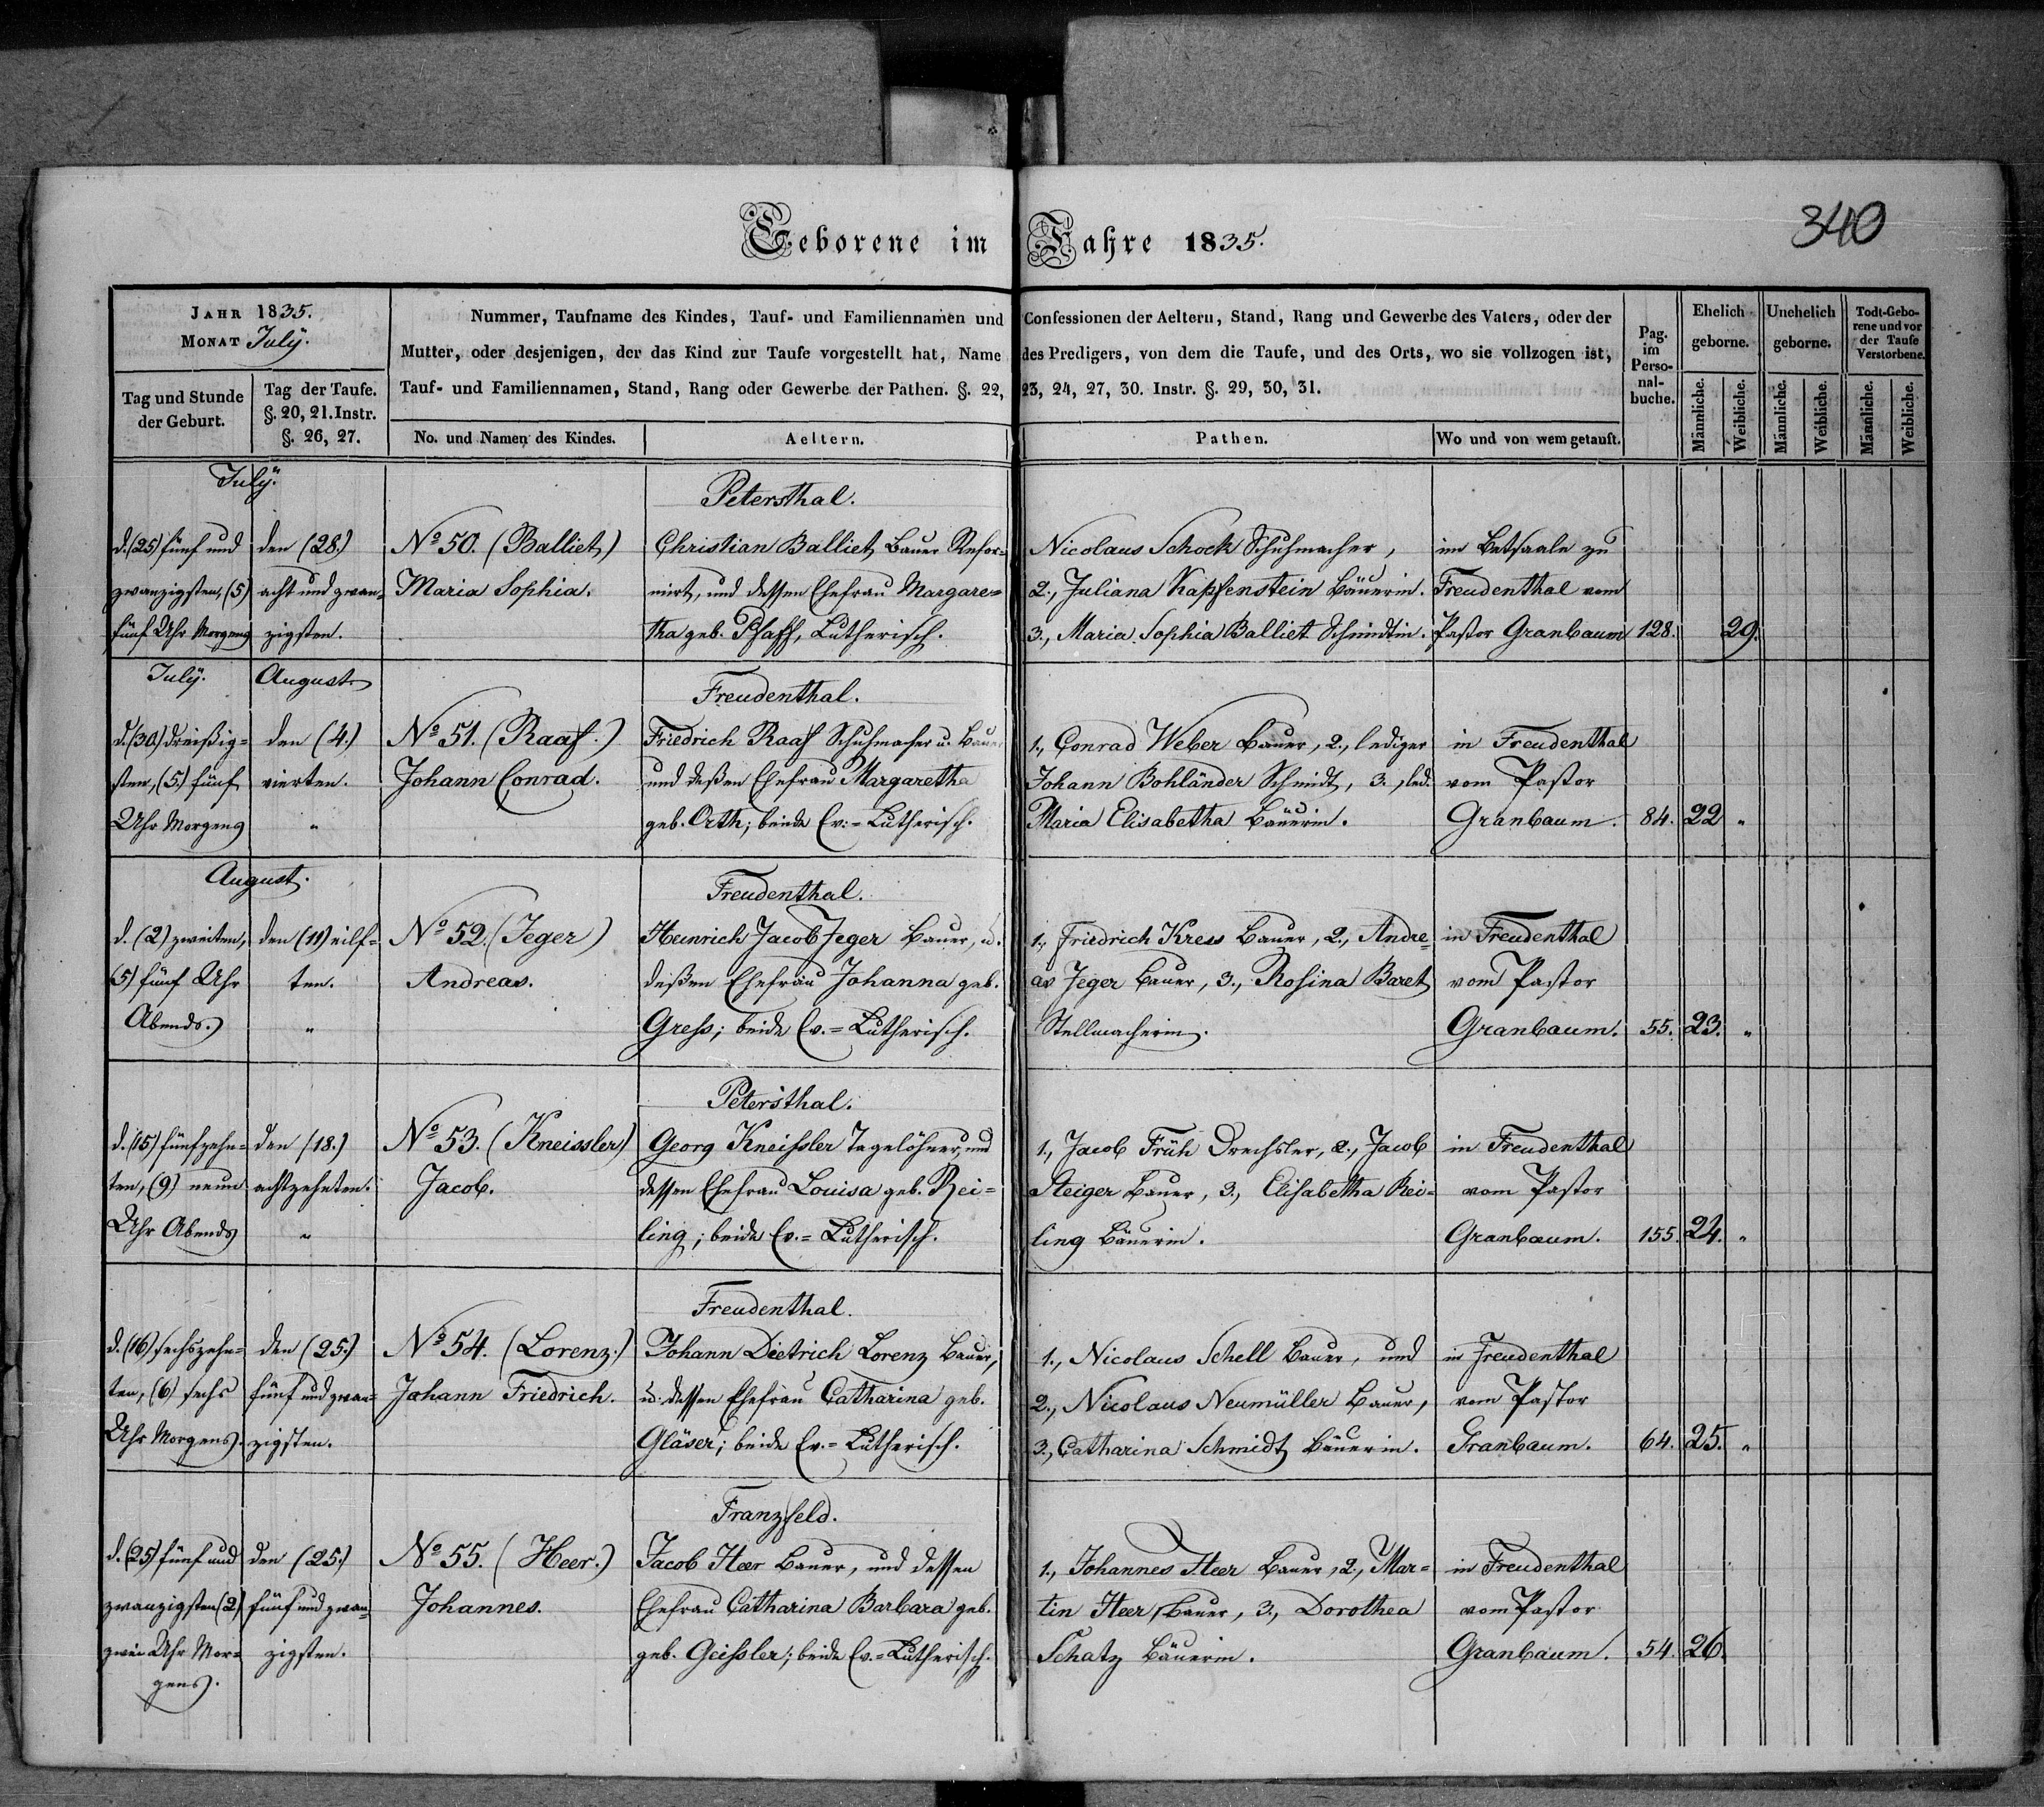 Geborene im Jahre 1835.
340
JAHR 1835.
MONAT July.
Nummer, Taufname des Kindes, Tauf- und Familiennamen und Confessionen der Aeltern, Stand, Rang und Gewerbe des Vaters, oder der
Mutter, oder desjenigen, der das Kind zur Taufe vorgestellt hat, Name des Predigers, von dem die Taufe, und des Orts, wo sie vollzogen ist,
Tauf- und Familiennamen, Stand, Rang oder Gewerbe der Pathen. §. 22, 23, 24, 27, 30. Instr. §. 29, 30, 31.
Tag und Stunde
der Geburt.
Tag der Taufe.
§. 20, 21. Instr.
§. 26, 27.
No. und Namen des Kindes.
Aeltern.
Pathen.
Wo und von wem getauft.
Pag.
im
Perso-
nal-
buche.
Ehelich
geborne.
Unehelich
geborne.
Todt-Gebo-
rene und vor
der Taufe
Verstorbene.
Männliche.
Weibliche.
Männliche.
Weibliche.
Männliche.
Weibliche.
July.
d. (25) fünf und
zwanzigsten, (5)
fünf Uhr Morgens
den (28.)
acht und zwan-
zigsten.
No 50. (Balliet)
Maria Sophia.
Petersthal.
Christian Balliet Bauer Refor-
mirt, und dessen Ehefrau Margare-
tha geb. Pfaff, Lutherisch.
Nicolaus Schock Schuhmacher,
2., Juliana Kapfenstein Bäuerin.
3., Maria Sophia Balliet Schmidtin.
im Betsaale zu
Freudenthal vom
Pastor Granbaum
128.
29.
July.
d. (30) dreißig-
sten, (5.) fünf
Uhr Morgens
August.
den (4.)
vierten.
"
No 51. (Raaf.)
Johann Conrad.
Freudenthal.
Friedrich Raaf Schuhmacher u. Bauer
und deßen Ehefrau Margaretha
geb. Orth; beide Ev.-Lutherisch.
1., Conrad Weber Bauer, 2., lediger
Johann Bohländer Schmidt, 3., led.
Maria Elisabetha Bäuerin.
in Freudenthal
vom Pastor
Granbaum.
84.
22
"
August.
d. (2) zweiten,
(5) fünf Uhr
Abends.
den (11) eilf-
ten.
"
No 52. (Jeger)
Andreas.
Freudenthal.
Heinrich Jacob Jeger Bauer, u.
deßen Ehefrau Johanna geb.
Greß; beide Ev.-Lutherisch.
1., Friedrich Kress Bauer, 2., Andre-
as Jeger Bauer, 3., Rosina Baret
Stellmacherin.
in Freudenthal
vom Pastor
Granbaum.
55.
23.
"
d. (15) fünfzehn-
ten, (9) neun
Uhr Abends
den (18.)
achtzehnten.
"
No 53. (Kneissler)
Jacob.
Petersthal.
Georg Kneißler Tagelöhner, und
dessen Ehefrau Louisa geb. Rei-
ling; beide Ev.-Lutherisch.
1., Jacob Früh Drechsler, 2., Jacob
Steiger Bauer, 3., Elisabetha Rei-
ling Bäuerin.
in Freudenthal
vom Pastor
Granbaum.
155.
24.
"
d. (16) sechszehn-
ten, (6) sechs
Uhr Morgens.
den (25.)
fünf und zwan-
zigsten.
No 54. (Lorenz.)
Johann Friedrich.
Freudenthal.
Johann Dietrich Lorenz Bauer,
u. dessen Ehefrau Catharina geb.
Gläser; beide Ev.-Lutherisch.
1., Nicolaus Schell Bauer, und
2., Nicolaus Neumüller Bauer,
3., Catharina Schmidt Bäuerin.
in Freudenthal
vom Pastor
Granbaum.
64.
25.
"
d. (25) fünf und
zwanzigsten (2)
zwei Uhr Mor-
gens.
den (25.)
fünf und zwan-
zigsten.
No 55. (Heer.)
Johannes.
Franzfeld.
Jacob Heer Bauer, und dessen
Ehefrau Catharina Barbara geb.
geb. Geißler; beide Ev.-Lutherisch.
1., Johannes Heer Bauer, 2., Mar-
tin Heer, Bauer, 3., Dorothea
Schatz Bäuerin.
in Freudenthal
vom Pastor
Granbaum.
54.
26.